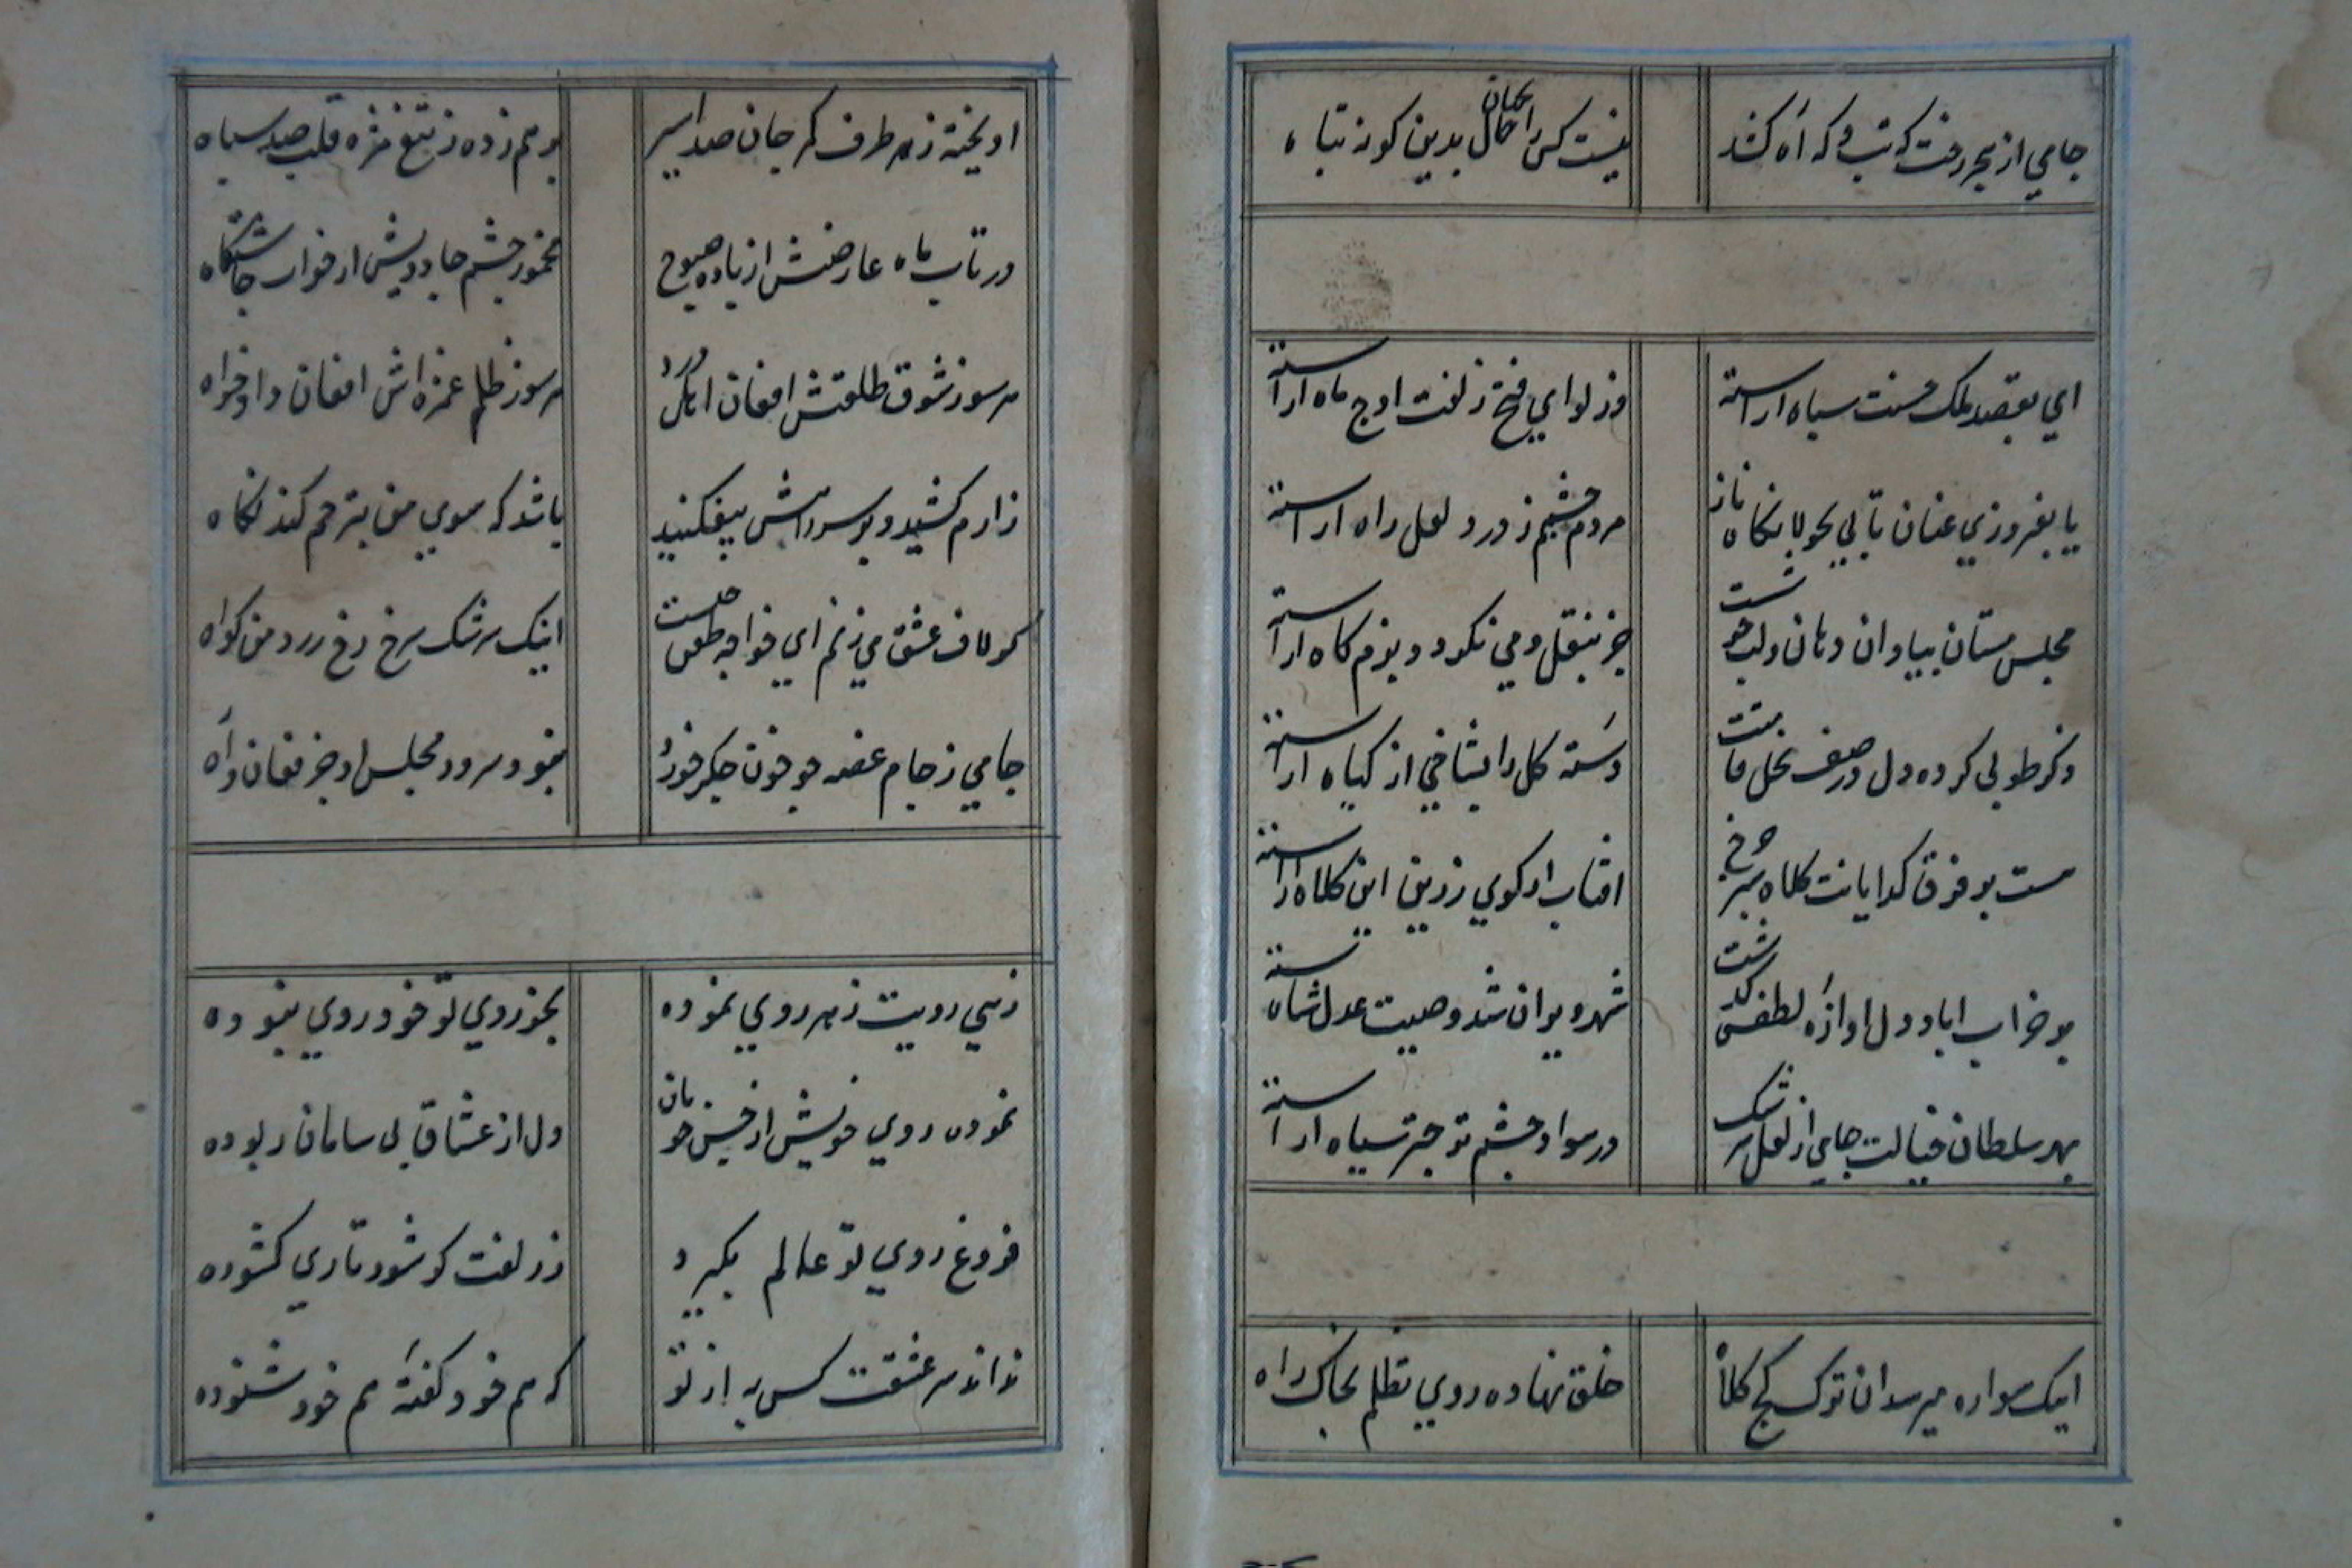 جامي از هجر رخت که تب و که آه کشد
نیست کس را بجهان حال بدین کونه تباه
اي بقصد ملک حسنت سپاه اراسته
وز لواي فتح زلفت اوج ماه اراسته
تا بفروزي عنان تابي بجولانکاه ناز
مردم چشم ز در و لعل راه اراسته
مجلس مستان بیا وان دهان ولب خوشست
جز بنقل و می نکردد بزم کاه اراسته
ذکر طوبی کرده دل در صف نخل قامتت
دسته کل را بشاخي از کیاه اراسته
هست بر فرق کدایانت کلاه سبز چرخ
افتاب از کوي زرین این کلاه اراسته
بر خراب اباد دل اوازه لطفش کذشت
شهر ویران شد وصیت عدل شاه اراسته
بهر سلطان خیالت جامي از لعل سرشک
در سواد چشم تو چتر سیاه اراسته
اینک سواره میرسد ان ترک کج کلاه
خلق نهاده روي تظلم بخاک راه
اویخته ز هر طرف کمر جان صد اسیر
بر هم زده ز تیغ مژه قلب صد سپاه
در تاب ماه عارضش از باده صبوح
مخمور چشم جادویش از خواب چاشتکاه
هر سو ز شوق طلعتش افغان اهل درد
هر سو ز ظلم غمزه اش افغان داد خواه
زارم کشید و بر سر راهش بیفکنید
باشد که سوي من بترحم کند نکاه
کر لاف عشق می زنم اي خواجه طعن چیست
اینک سرشک سرخ و رخ زرد من کواه
جامي ز جام غصه چو خون جکر خورد
نبود سرود مجلس او جز فغان و آه
زهي رویت ز هر روي نموده
بجز روي تو خود روي نبوده
نموده روي خویش از حسن خوبان
دل از عشاق بی سامان ربوده
فروغ روي تو عالم بکیرد
ز زلفت کر شود تاري کشوده
نداند سر عشقت کس به از تو
که هم خود کفتهٔ هم خود شنوده